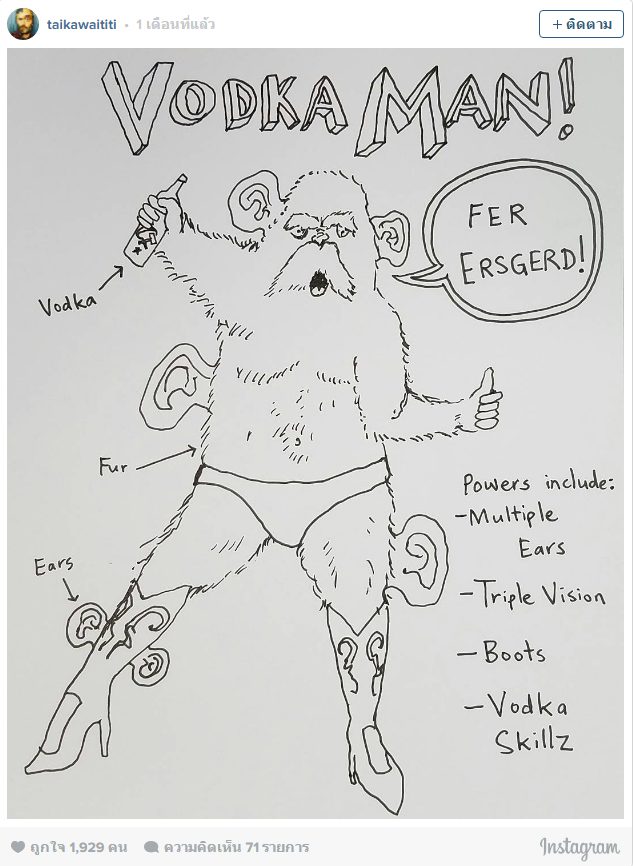 taikawaititi • 1 เดือนที่แล้ว
+ ติดตาม
VODKA MAN!
FER
ERSGERD!
Vodka
Fur
Ears
Powers include:
- Multiple
Ears
- Triple Vision
- Boots
- Vodka
Skillz
ถูกใจ 1,929 คน ความคิดเห็น 71 รายการ
Instagram